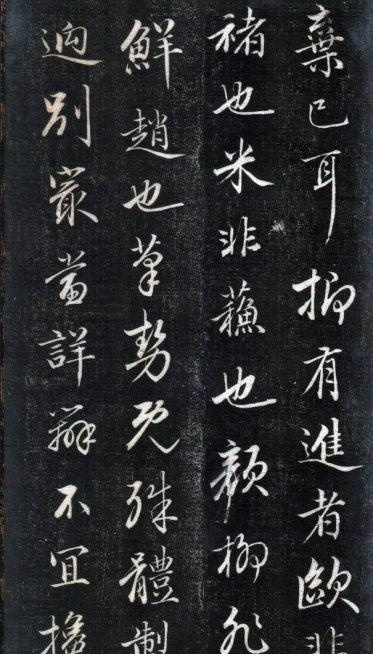 棄已耳抑有進者歐非
褚也米非蘓也顏柳非
鮮趙也筆勢既殊體製
逈別最當詳辨不宜